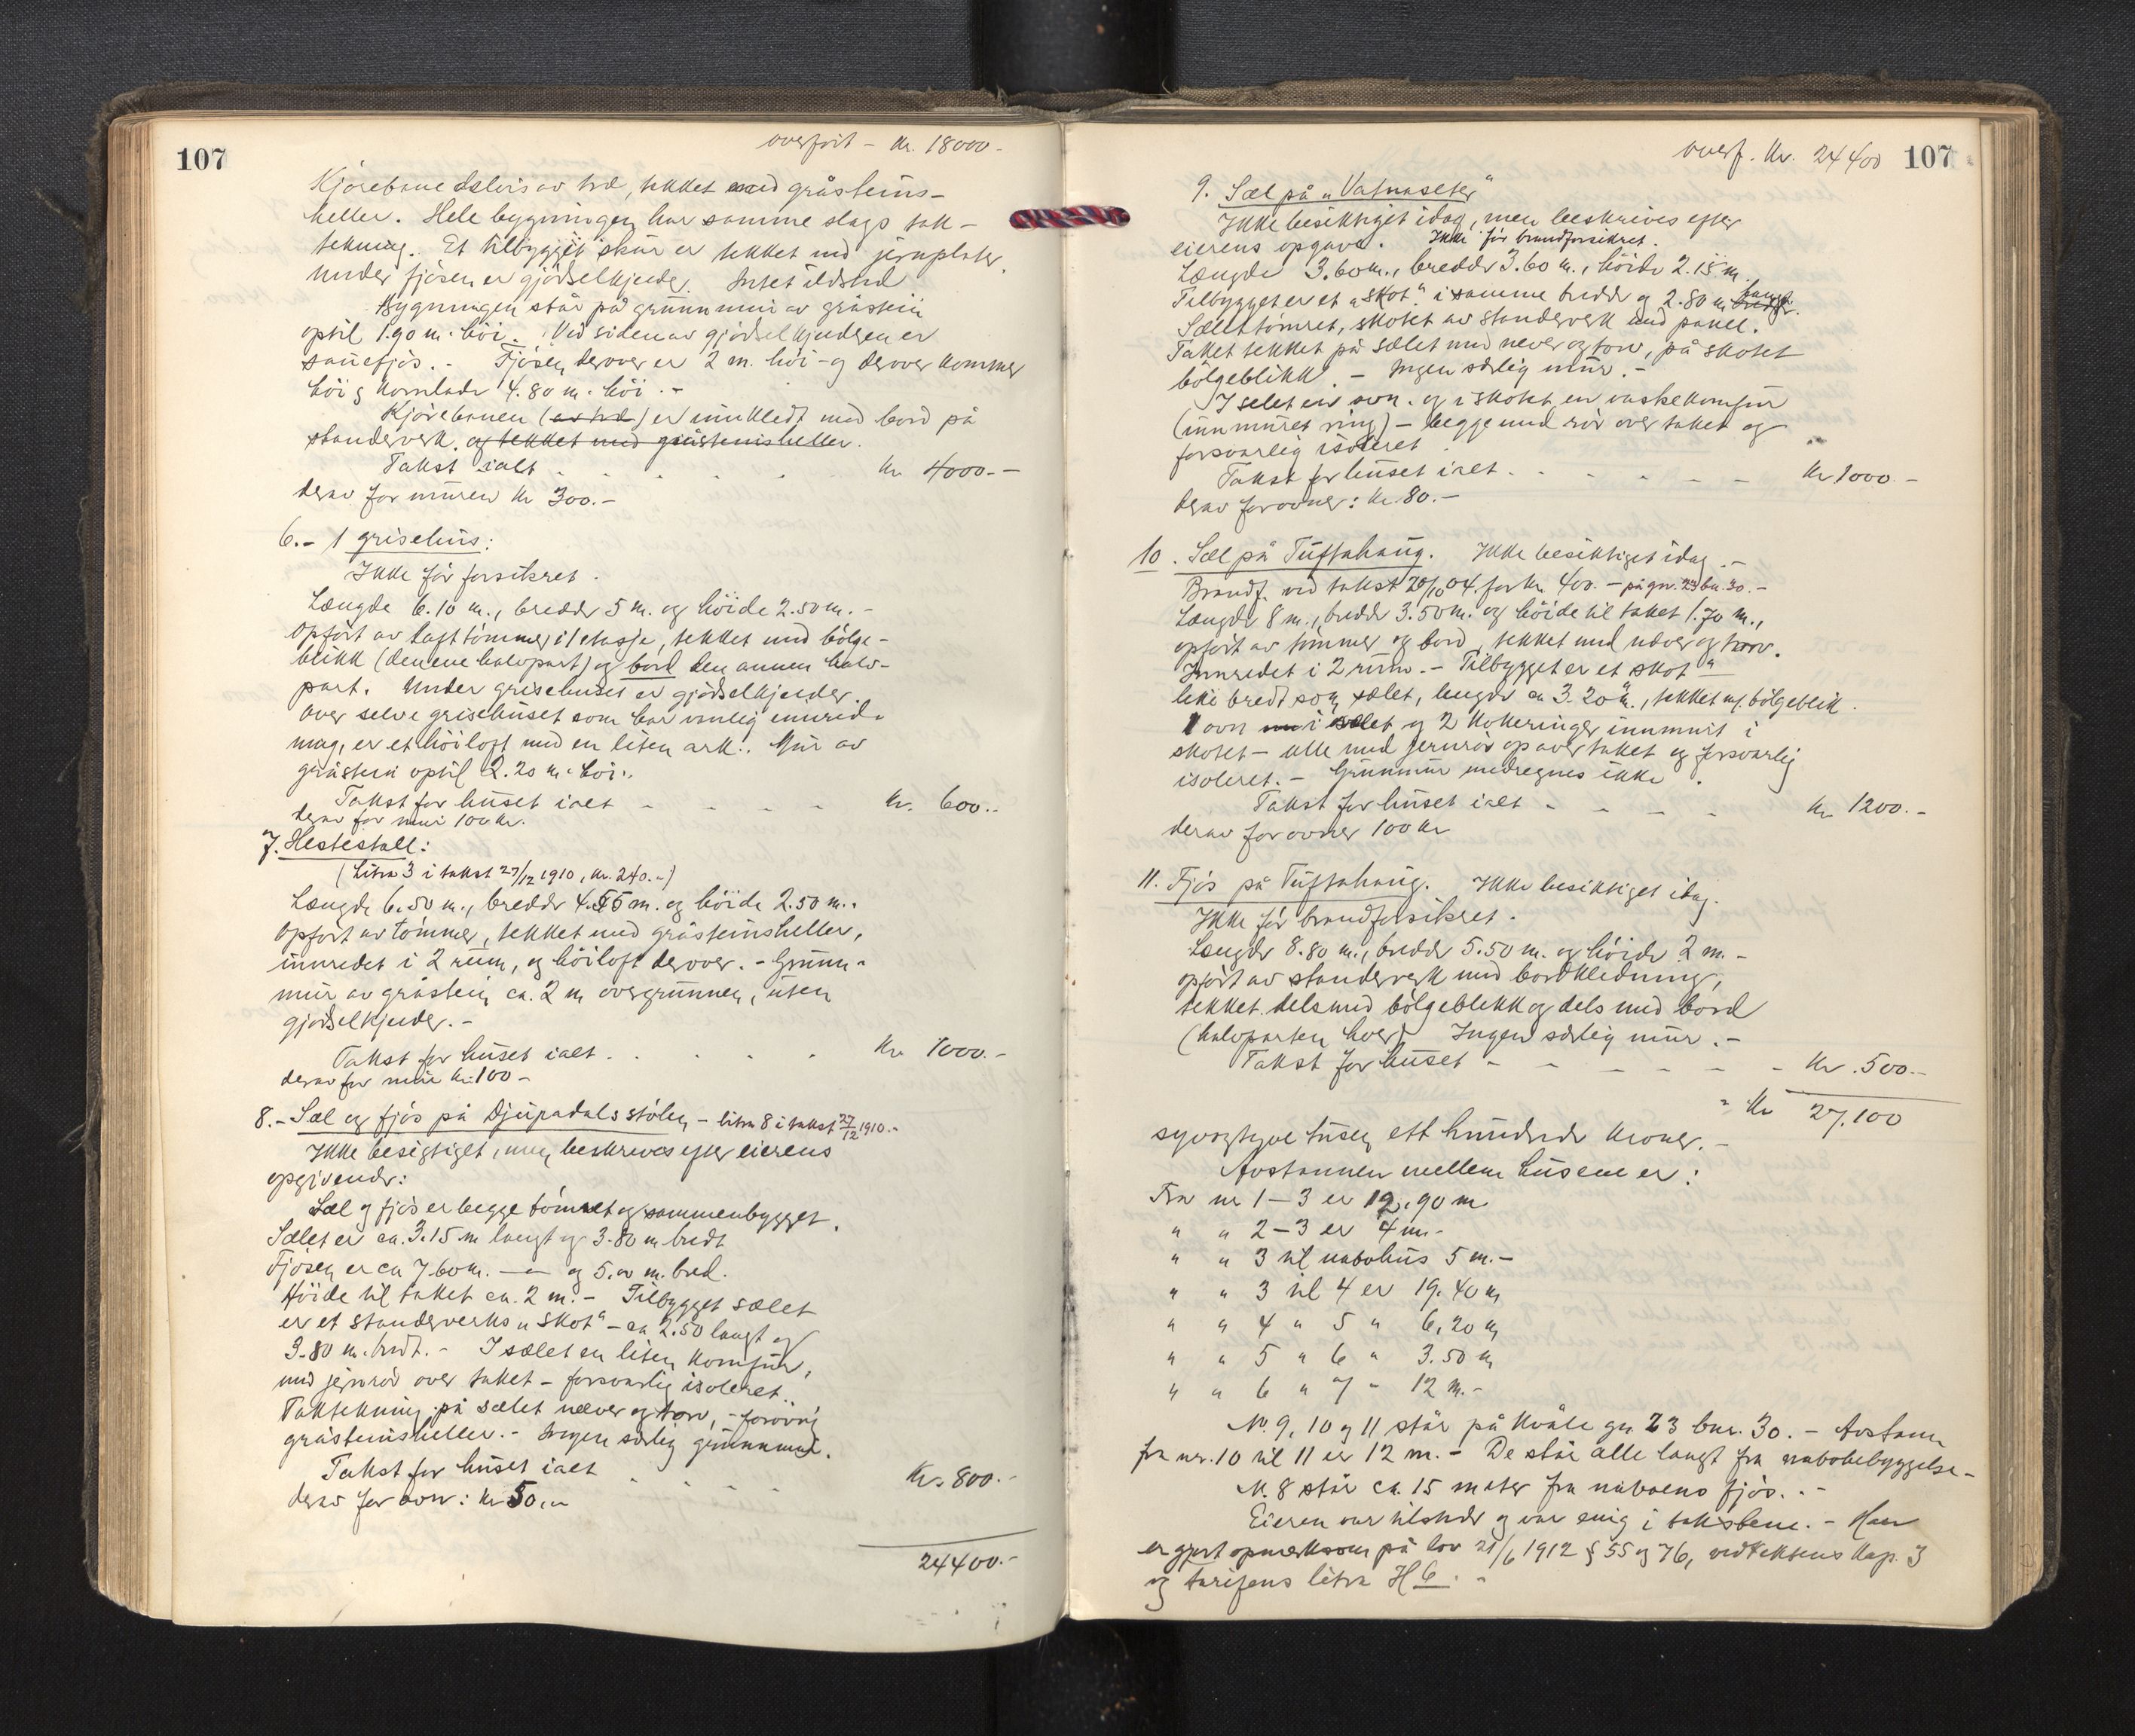 107
overført - Kr. 18000.-
Kjørebane delvis av tre, tekket med gråsteins-
heller. Hele bygningen har samme slags tak-
tekning. Et tilbygget skur er tekket med jernplater.
Under fjøsen er gjødselkjeller. Intet ildsted
Bygningen står på grunnmur av gråstein
optil 1.90 m. høi. Ved siden av gjødselkjelderen er
sauefjøs. - Fjøsen derover er 2 m. høi - og derover kommer
høi og kornlade 4.80 m. høi. -
Kjørebanen (av tre) er innkledt med bord på
standerverk. og tekket med gråsteinsheller.
Takst ialt - - - - Kr 4000.-
derav for muren Kr 300.-
6.- 1 grisehus:
Ikke før forsikret.
Længde 6.10 m., bredde 5 m. og høide 2.50 m. -
Opført av lafttømmer i 1 etasje, tekket med bølge-
blikk (den ene halvpart) og bord den annen halv-
part. Under grisehuset er gjødselkjelder.
Over selve grisehuset som har vanlig innred-
ning, er et høiloft med en liten ark. Mur av
gråstein optil 2.20 m. høi.
Takst for huset ialt - - - - Kr. 600.-
derav for mur 100 kr.
7. Hestestall:
(Litra 3 i takst 27/12 1910, kr. 240.-)
Længde 6.50 m., bredde 4.55 m. og høide 2.50 m.
Opført av tømmer, tekket med gråsteinsheller,
innredet i 2 rum, og høiloft derover. - Grunn-
mur av gråstein ca. 2 m over grunnen, uten
gjødselkjelder. -
Takst for huset ialt . . . . Kr 1000.-
derav for mur kr. 100 -
8.- Sæl og fjøs på Djupadalsstølen - litra 8 i takst 27/12 1910.-
Ikke besigtiget, men beskrives efter eierens
opgivende:
Sæl og fjøs er begge tømret og sammenbygget.
Sælet er ca. 3.15 m langt og 3.80 m bredt
Fjøsen er ca 7.60 m. -"- og 5.00 m. bred.
Høide til taket ca. 2 m. - Tilbygget sælet
er et standerverks "skot" - ca 2.50 langt og
3.80 m. bredt. - I sælet en liten komfur,
med jernrør over taket - forsvarlig isoleret.
Taktekning på sælet never og torv, - forøvrig
gråsteinsheller. - Ingen særlig grunnmur.
Takst for huset ialt - - - - Kr. 800.-
derav for ovn: kr 50.-
24400.-
overf. Kr. 24400 107
9. Sæl på "Vatnaseter"
Ikke besiktiget idag, men beskrives efter
eierens opgave. Ikke før brandforsikret.
Længde 3.60 m., bredde 3.60 m., høide 2.15 m.
Tilbygget er et "skot" i samme bredde og 2.80 m bredt langt.
Sælet tømret, skotet av standerverk med panel.
Taket tekket på sælet med never og torv, på skotet
bølgeblikk. - Ingen særlig mur. -
I selet en ovn. og i skotet en vaskekomfur
(innmuret ring) - begge med rør over taket og
forsvarlig isoleret
Takst for huset ialt - - - - Kr 1000.-
derav for ovner: Kr. 80.-
10. Sæl på Tuftahaug. Ikke besiktiget idag. -
Brandf. ved takst 20/10 04. for kr 400. - på gnr. 23 bn. 30. -
Længde 8 m., bredde 3.50 m. og høide til taket 1.70 m.,
opført av tømmer og bord, tekket med never og torv.
Innredet i 2 rum. - Tilbygget er et "skot"
like bredt som sælet, lengde ca 3.20 m., tekket m. bølgeblik.
1 ovn i sælet og 2 kokeringer innmurt i
skotet - alle med jernrør op over taket og forsvarlig
isoleret. - Grunnmur medregnes ikke.
Takst for huset ialt - - - - Kr 1200.-
derav for ovner 100 kr
11. Fjøs på Tuftahaug. Ikke besiktiget idag.
Ikke før brandforsikret.
Længde 8.80 m., bredde 5.50 m. og høide 2 m. -
opført av standerverk med bordkledning,
tekket dels med bølgeblikk og dels med bord
(halvparten hver) Ingen særlig mur. -
Takst for huset - - - - - Kr. 500.-
= Kr 27.100
syvogtyve tusen ett hundrede kroner. -
Avstannen mellem husene er:
Fra nr 1-3 er 12.90 m
" " 2-3 er 4 m.-
" " 3 til nabohus 5 m.-
" " 3 til 4 er 19.40 m
" " 4 " 5 " 6.20 m
" " 5 " 6 " 3.50 m
" " 6 " 7 - 12 m.-
Nr. 9, 10 og 11 står på Kvåle gnr. 23 bnr. 30. - Avstann
fra nr. 10 til 11 er 12 m. - De står alle langt fra nabobebyggelse -
Nr. 8 står ca. 15 meter fra naboens fjøs. . -
Eieren var tilstede og var enig i takstene. - Han
er gjort opmerksom på lov 21/6 1912 § 55 og 76, vedtektens kap. 3
og tarifens litra H 6. -